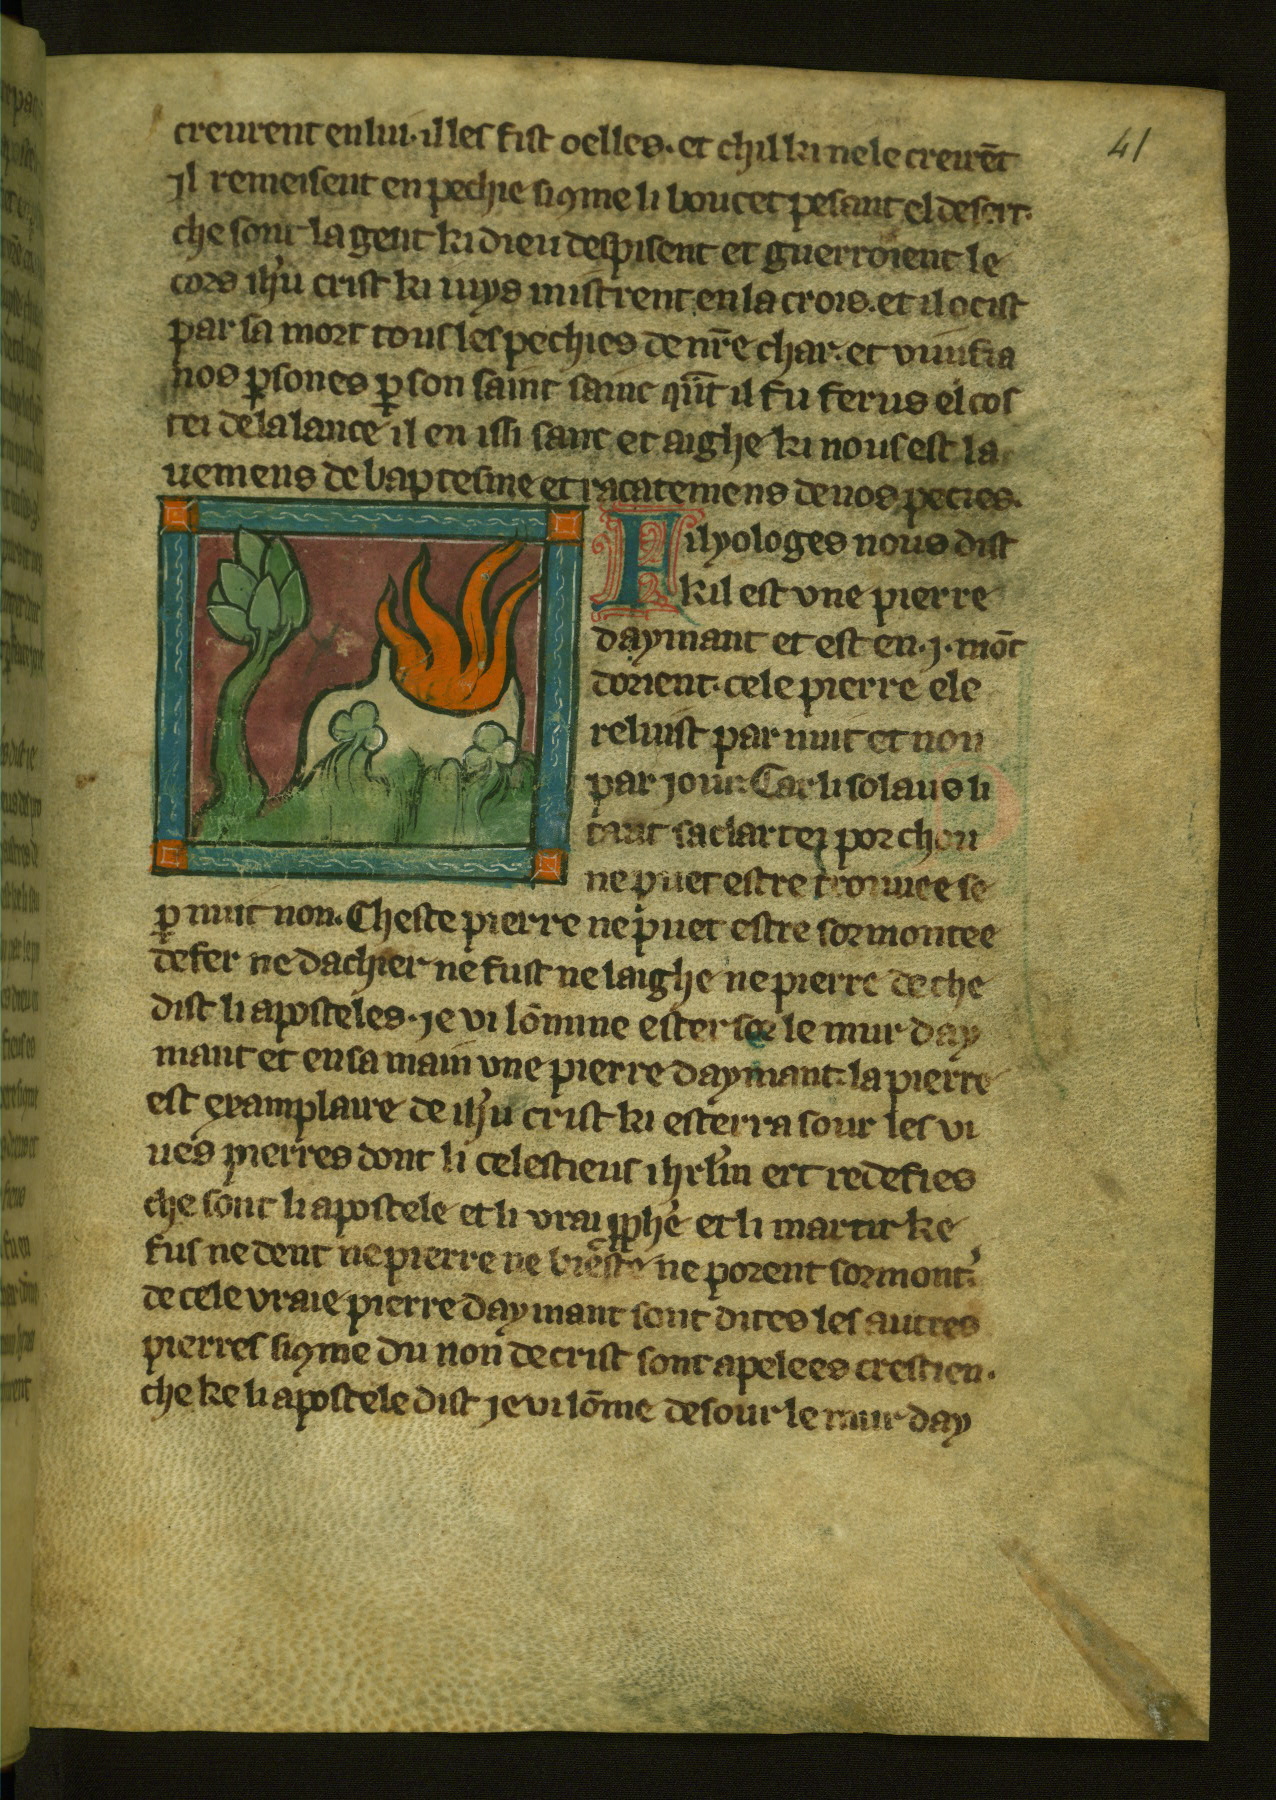 41
creurent en lui · il les fist oelles · et chil ki ne le creurēt
Jl remeisent en pechie si ꝯme li bouc et pesant el desert ·
che sont la gent ki dieu despisent et guerroient le
cors ih'u crist ki iuys mistrent en la crois · et il ocist
par sa mort tous les pechies de nr̄e char · et viuifia
nos ꝑsones ꝑ son saint sanc qūt il fu ferus el cos
tei de la lance il en issi sanc et aighe ki nous est la
uemens de baptesme et racatemens de nos pecies ·
Filyologes nous dist
kil est vne pierre
daymant et est en · j · mōt
dorient · cele pierre ele
reluist par nuit et non
par jour · Car li solaus li
taut sa clartei por chou
ne puet estre trouuee se
ꝑ nuit non · Cheste pierre ne puet estre sormontee
de fer ne dachier ne fust ne laighe ne pierre de che
dist li aposteles · je vi lōmme ester sor le mur day
mant et en sa main vne pierre daymant · la pierre
est examplaire de ih'u crist ki esterra sour les vi
ues pierres dont li celestieus ihrl'm ert redefies
che sont li apostele et li vrai ꝓphe et li martir ke
fus ne dent ne pierre ne bieste ne porent sormont'
de cele vraie pierre daymant sont dites les autres
pierres si ꝯme du non de crist sont apelees crestien ·
che ke li apostele dist je vi lōme desour le mur day